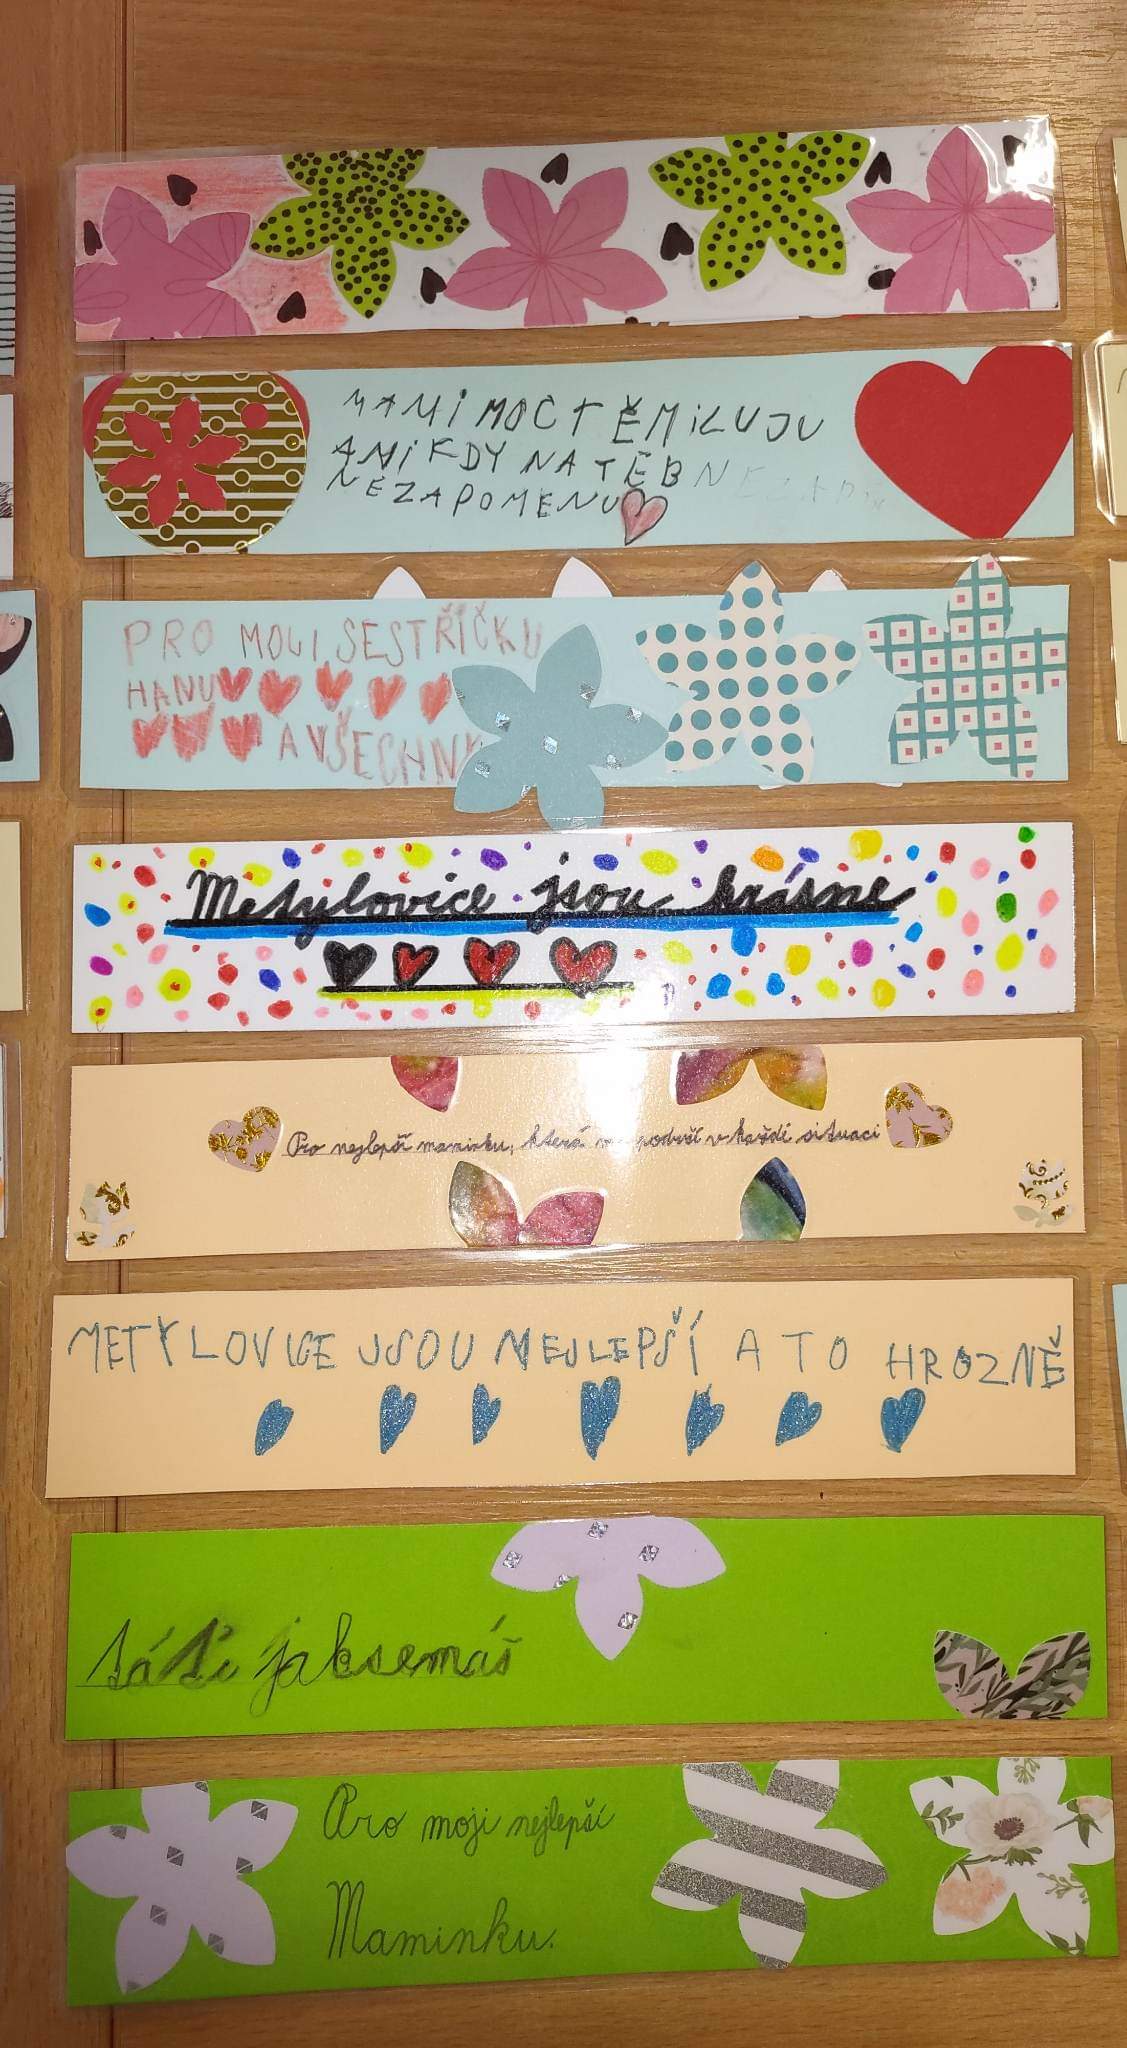 MAMI MOC TĚ MILUJU
ANIKDY NA TĚB
NEZAPOMENU
PRO MOJI SESTŘIČKU
HANU
A VŠECHNY
Metylovice jsou krásne
Pro nejlepší maminku, která podrží v každé situaci
METYLOVICE JSOU NEJLEPŠÍ A TO HROZNĚ
jaksemáš
Pro moji nejlepší
Maminku.